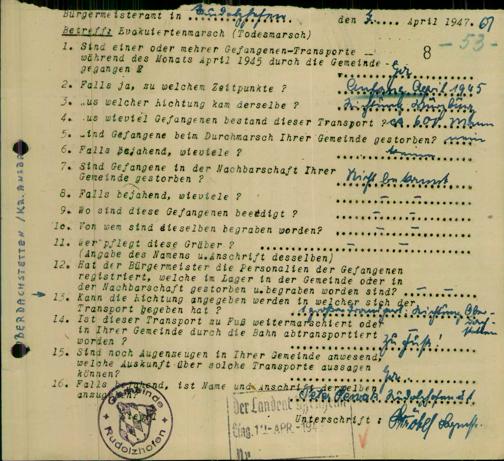 Bürgermeisteramt in Rudolzhofen. den 3. April 1947. 67
Betreff: Evakuiertenmarsch (Todesmarsch) 8 - 53 -
1. Sind einer oder mehrer Gefangenen-Transporte
während des Monats April 1945 durch die Gemeinde
gegangen ? Ja
2. Falls ja, zu welchem Zeitpunkte ? Anfang April 1945
3. aus welcher Richtung kam derselbe ? Richtung Würzburg
4. aus wieviel Gefangenen bestand dieser Transport ? ca 600 Mann
5. Sind Gefangene beim Durchmarsch Ihrer Gemeinde gestorben? nein
6. Falls bejahend, wieviele ? keine
7. Sind Gefangene in der Nachbarschaft Ihrer
Gemeinde gestorben ? Nicht bekannt
8. Falls bejahend, wieviele ? -
9. Wo sind diese Gefangenen beerdigt ? - -
10. Von wem sind dieselben begraben worden? - -
11. Wer pflegt diese Gräber ? - -
(Angabe des Namens u.Anschrift desselben)
12. Hat der Bürgermeister die Personalien der Gefangenen
registriert, welche im Lager in der Gemeinde oder in
der Nachbarschaft gestorben u.begraben worden sind? - -
13. Kann die Richtung angegeben werden in welcher sich der
Transport begeben hat ? Richtung
14. Ist dieser Transport zu Fuß weitermarschiert oder
in Ihrer Gemeinde durch die Bahn abtransportiert
worden ? Zu Fuß!
15. Sind noch Augenzeugen in Ihrer Gemeinde anwesend,
welche Auskunft über solche Transporte aussagen
können? Ja
16. Falls bejahend, ist Name und Anschrift derselben
anzugeben? Peter Rudolzhofen
Unterschrift :
Gemeinde
Rudolzhofen
Der Landrat
Eing. 10. APR. 194
Nr.
OBERDACHSTETTEN /KR. ANSBACH